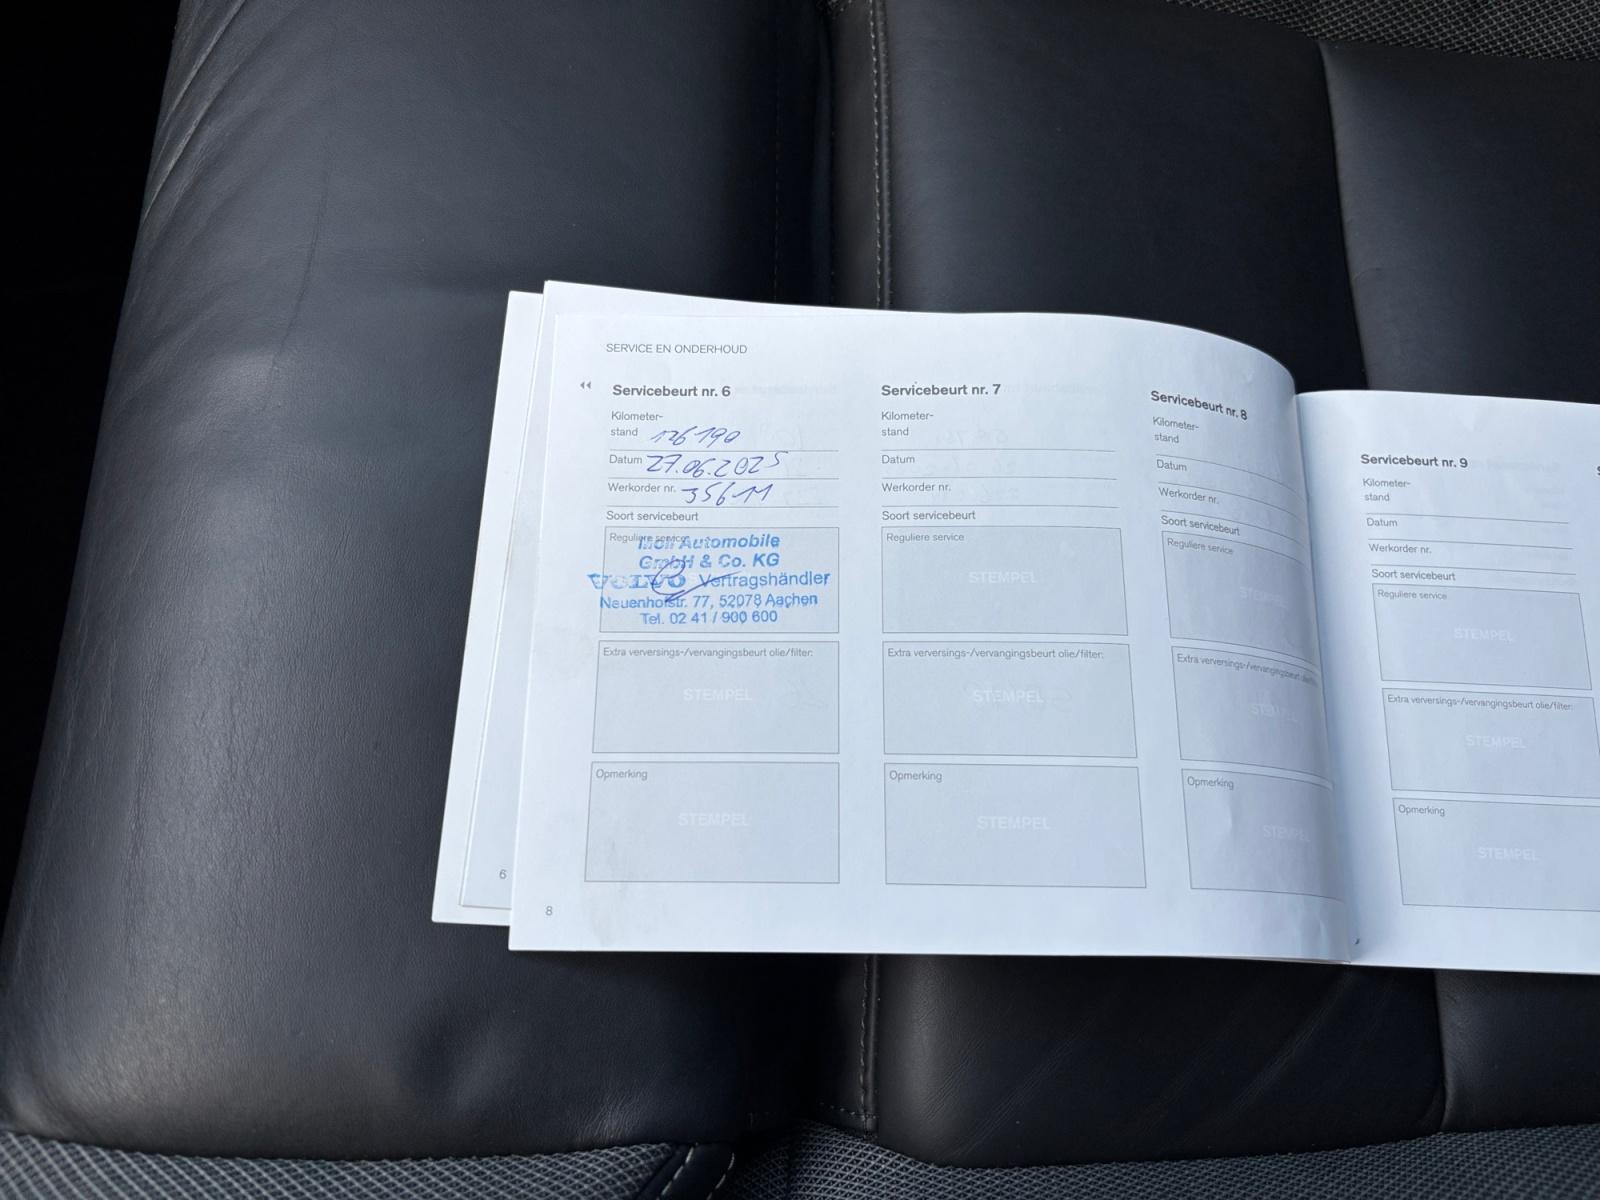 SERVICE EN ONDERHOUD
Servicebeurt nr. 6
Kilometer-
stand 126190
Datum 27.06.2025
Werkorder nr. 35611
Soort servicebeurt
Reguliere service
Moll Automobile
GmbH & Co. KG
VOLVO Vertragshändler
Neuenhofstr. 77, 52078 Aachen
Tel. 02 41 / 900 600
Extra verversings-/vervangingsbeurt olie/filter:
STEMPEL
Opmerking
STEMPEL
6
8
Servicebeurt nr. 7
Kilometer-
stand
Datum
Werkorder nr.
Soort servicebeurt
Reguliere service
STEMPEL
Extra verversings-/vervangingsbeurt olie/filter:
STEMPEL
Opmerking
STEMPEL
Servicebeurt nr. 8
Kilometer-
stand
Datum
Werkorder nr.
Soort servicebeurt
Reguliere service
STEMPEL
Extra verversings-/vervangingsbeurt olie/filter:
STEMPEL
Opmerking
STEMPEL
Servicebeurt nr. 9
Kilometer-
stand
Datum
Werkorder nr.
Soort servicebeurt
Reguliere service
STEMPEL
Extra verversings-/vervangingsbeurt olie/filter:
STEMPEL
Opmerking
STEMPEL